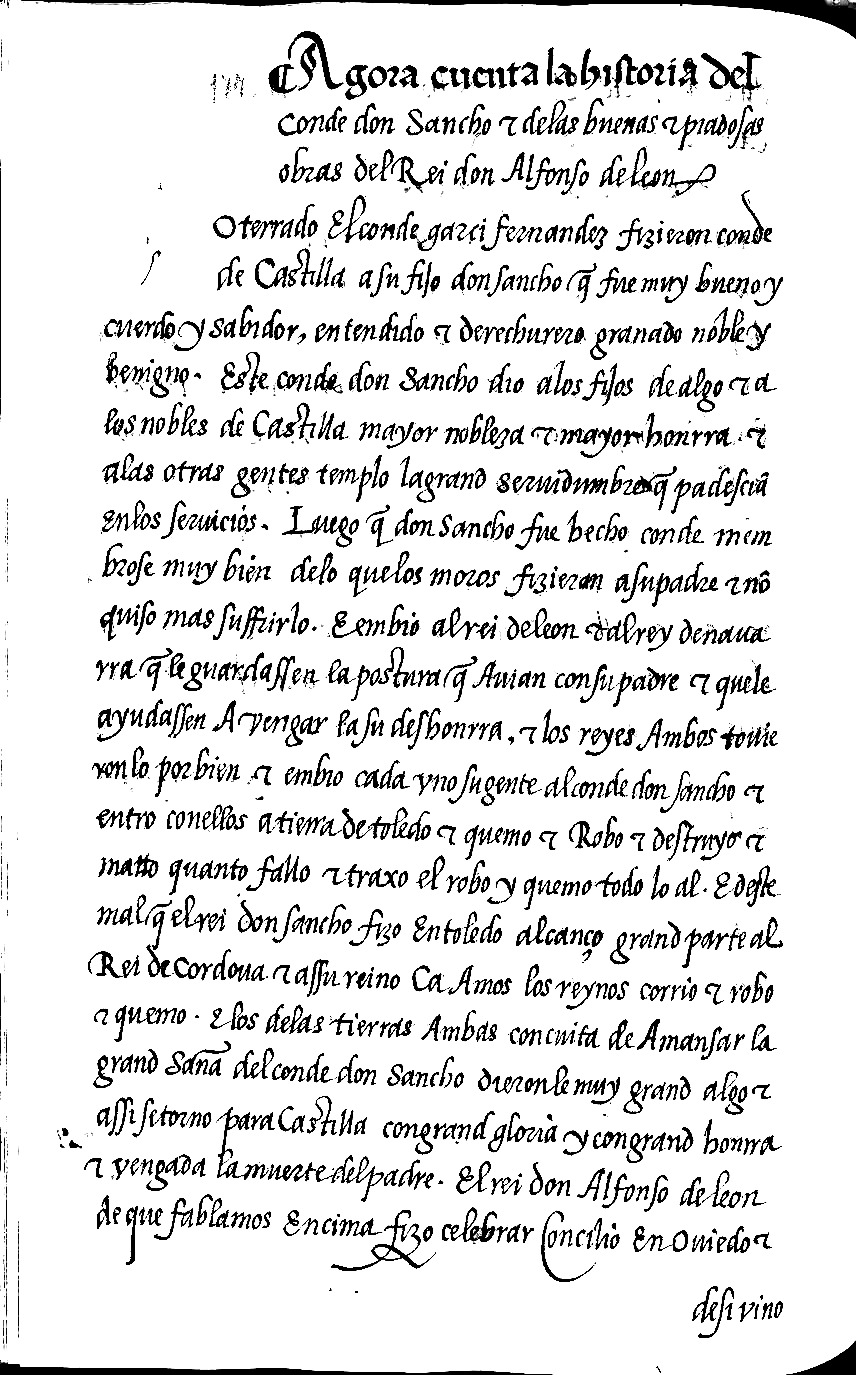 Agora cuenta la historia del
conde don Sancho τ delas buenas τ piadosas
obras del Rei don Alfonso de leon
Oterrado El conde garçi fernandez fizieron conde
de Castilla a su fijo don sancho q̃ fue muy bueno y
cuerdo y sabidor, entendido τ derechurero granado noble y
benigno. Este conde don Sancho dio alos fijos de algo τ a
los nobles de Castilla mayor nobleza τ mayor honrra τ
alas otras gentes templo la grand seruidumbre q̃ padesciã
En los seruicios. Luego q̃ don Sancho fue hecho conde mem
brose muy bien delo que los moros fizieron a su padre τ nõ
quiso mas suffrirlo. E embio al rei de leon τ al rey de naua
rra q̃ le guardassen la postura q̃ Auian con su padre τ que le
ayudassen A vengar la su deshonrra, τ los reyes Ambos touie
ron lo por bien τ embio cada vno su gente al conde don sancho τ
entro con ellos a tierra de toledo τ quemo τ Robo τ destruyo τ
matto quanto fallo τ traxo el robo y quemo todo lo al. E deste
mal q̃ el rei don sancho fizo En toledo alcanço grand parte al
Rei de Cordoua τ assu reino Ca Amos los reynos corrio τ robo
τ quemo. E los delas tierras Ambas con cuita de Amansar la
grand Saña del conde don Sancho dieron le muy grand algo τ
assi se torno para Castilla con grand gloria y con grand honrra
τ vengada la muerte del padre. El rei don Alfonso de leon
de que fablamos Encima fizo celebrar Concilio En Ouiedo τ
desi vino